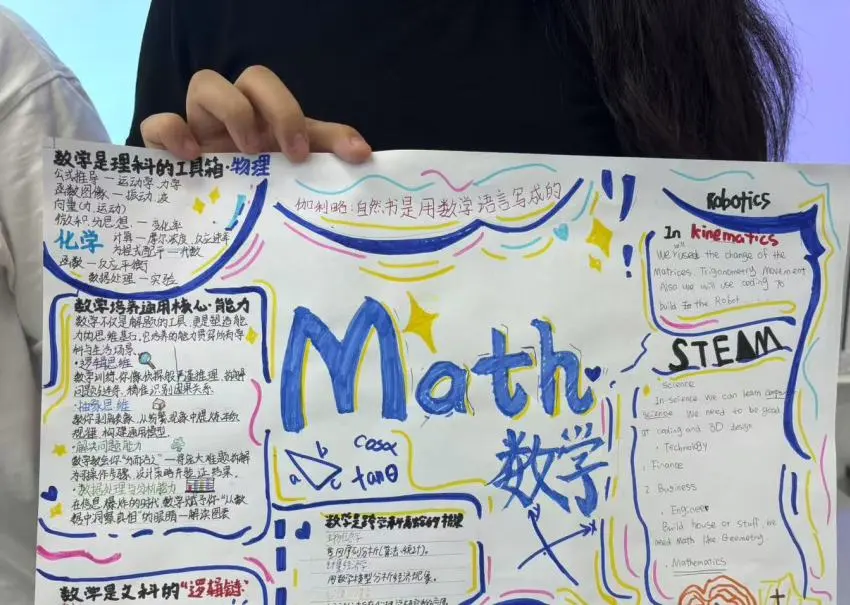 数学是理科的工具箱·物理
公式推导 — 运动学 力学
函数图像 — 振动 波
向量(力,运动)
微积分思想 — 变化率
化学 计算 — 摩尔浓度 反应速率
方程式配平 — 代数
函数 — 反应平衡
数据处理 — 实验
数学培养通用核心·能力
数学不仅是解题的工具,更是塑造能
力的思维基石,它培养的能力贯穿所有学
科与生活场景。
·逻辑思维
数学训练你像侦探般严谨推理,拆解
问题,精准识别因果关系.
·抽象思维
规律,构建通用模型
·解决问题能力
数学教会你"分而治之"—将庞大难题拆解
为可操作步骤,设计策略并验证结果.
·数据处理与分析能力
在信息爆炸的时代,数学赋予你"从数
据中洞察真相"的眼睛—解读图表
数学是文科的"逻辑链
伽利略:自然书是用数学语言写成的
Math
数学
a
b
c
cosα
tanθ
数学是跨学科
用数学模型分析经济现象.
Robotics
In kinematics
We will used the change of the
Matrices. Trigonometry Movement
Also we will use coding To
build In the Robot
STEAM
· science
In science We can learn
science We need to be good
at coding and 3D design
· Technology
1. Finance
2. Business
· Engineer
Build house or stuff, we
need Math like Geometry.
· Mathematics
+